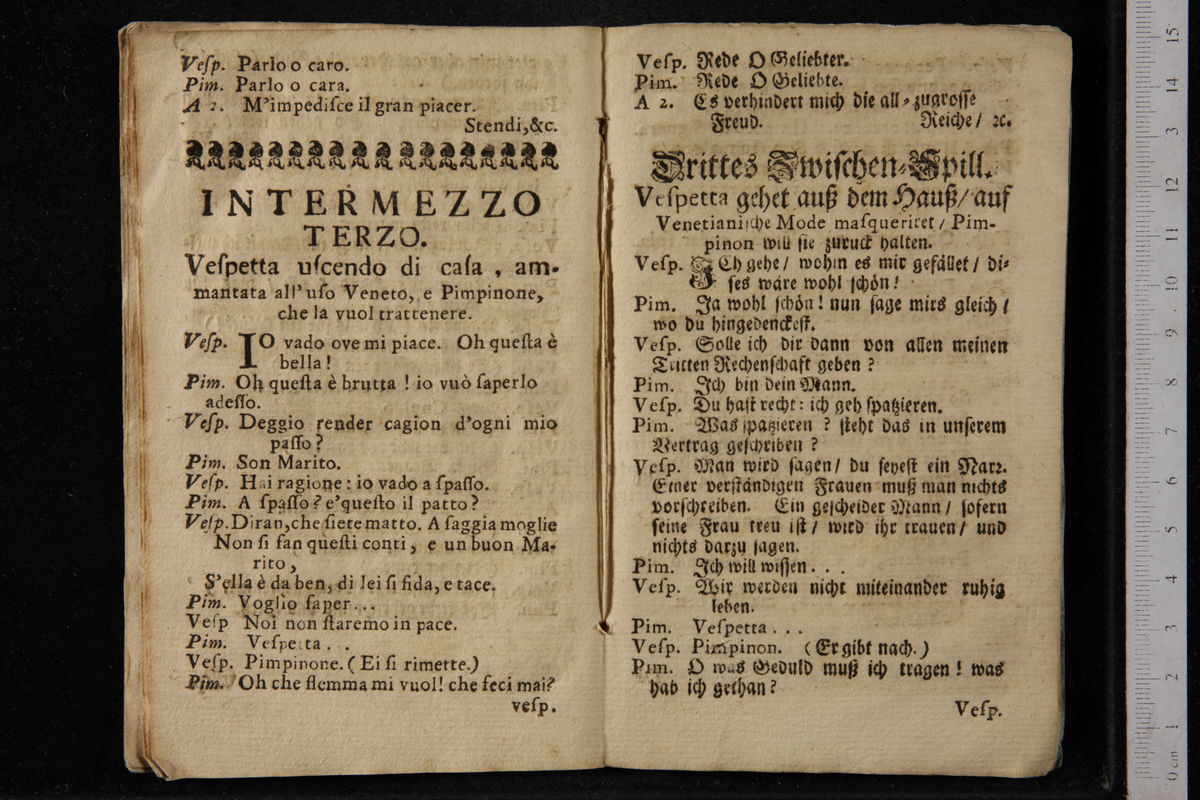 Veſp. Parlo o caro.
Pim. Parlo o cara.
A 2. M'impediſce il gran piacer.
Stendi, &c.
INTERMEZZO
TERZO.
Veſpetta uſcendo di caſa, am-
mantata all' uſo Veneto, e Pimpinone,
che la vuol trattenere.
Veſp. IO vado ove mi piace. Oh queſta è
bella!
Pim. Oh queſta è brutta! io vuò ſaperlo
adeſſo.
Veſp. Deggio render cagion d'ogni mio
paſſo?
Pim. Son Marito.
Veſp. Hai ragione: io vado a ſpaſſo.
Pim. A ſpaſſo? e'queſto il patto?
Veſp. Diran, che ſiete matto. A ſaggia moglie
Non ſi fan queſti conti, e un buon Ma-
rito,
S'ella è da ben, di lei ſi fida, e tace.
Pim. Voglio ſaper...
Veſp Noi non ſtaremo in pace.
Pim. Veſpetta . .
Veſp. Pimpinone. (Ei ſi rimette.)
Pim. Oh che flemma mi vuol! che feci mai?
veſp.
Veſp. Rede O Geliebter.
Pim. Rede O Geliebte.
A 2. Es verhindert mich die all-zugroſſe
Freud. Reiche/ ꝛc.
Drittes Zwiſchen-Spill.
Veſpetta gehet auß dem Hauß/ auf
Venetianiſche Mode maſqueriret/ Pim-
pinon will ſie zuruck halten.
Veſp. ICh gehe/ wohin es mir gefället/ di-
ſes wäre wohl ſchön!
Pim. Ja wohl ſchön! nun ſage mirs gleich/
wo du hingedenckeſt.
Veſp. Solle ich dir dann von allen meinen
Tritten Rechenſchaft geben?
Pim. Ich bin dein Mann.
Veſp. Du haſt recht: ich geh ſpatzieren.
Pim. Was ſpatzieren? ſteht das in unſerem
Vertrag geſchriben?
Veſp. Man wird ſagen/ du ſeyeſt ein Narꝛ.
Einer verſtändigen Frauen muß man nichts
vorſchreiben. Ein geſcheider Mann/ ſofern
ſeine Frau treu iſt/ wird ihr trauen/ und
nichts darzu ſagen.
Pim. Ich will wiſſen . . .
Veſp. Wir werden nicht miteinander ruhig
leben.
Pim. Veſpetta . . .
Veſp. Pimpinon. (Er gibt nach.)
Pim. O was Geduld muß ich tragen! was
hab ich gethan?
Veſp.
15
14
13
12
11
10
9
8
7
6
5
4
3
2
1
0 cm